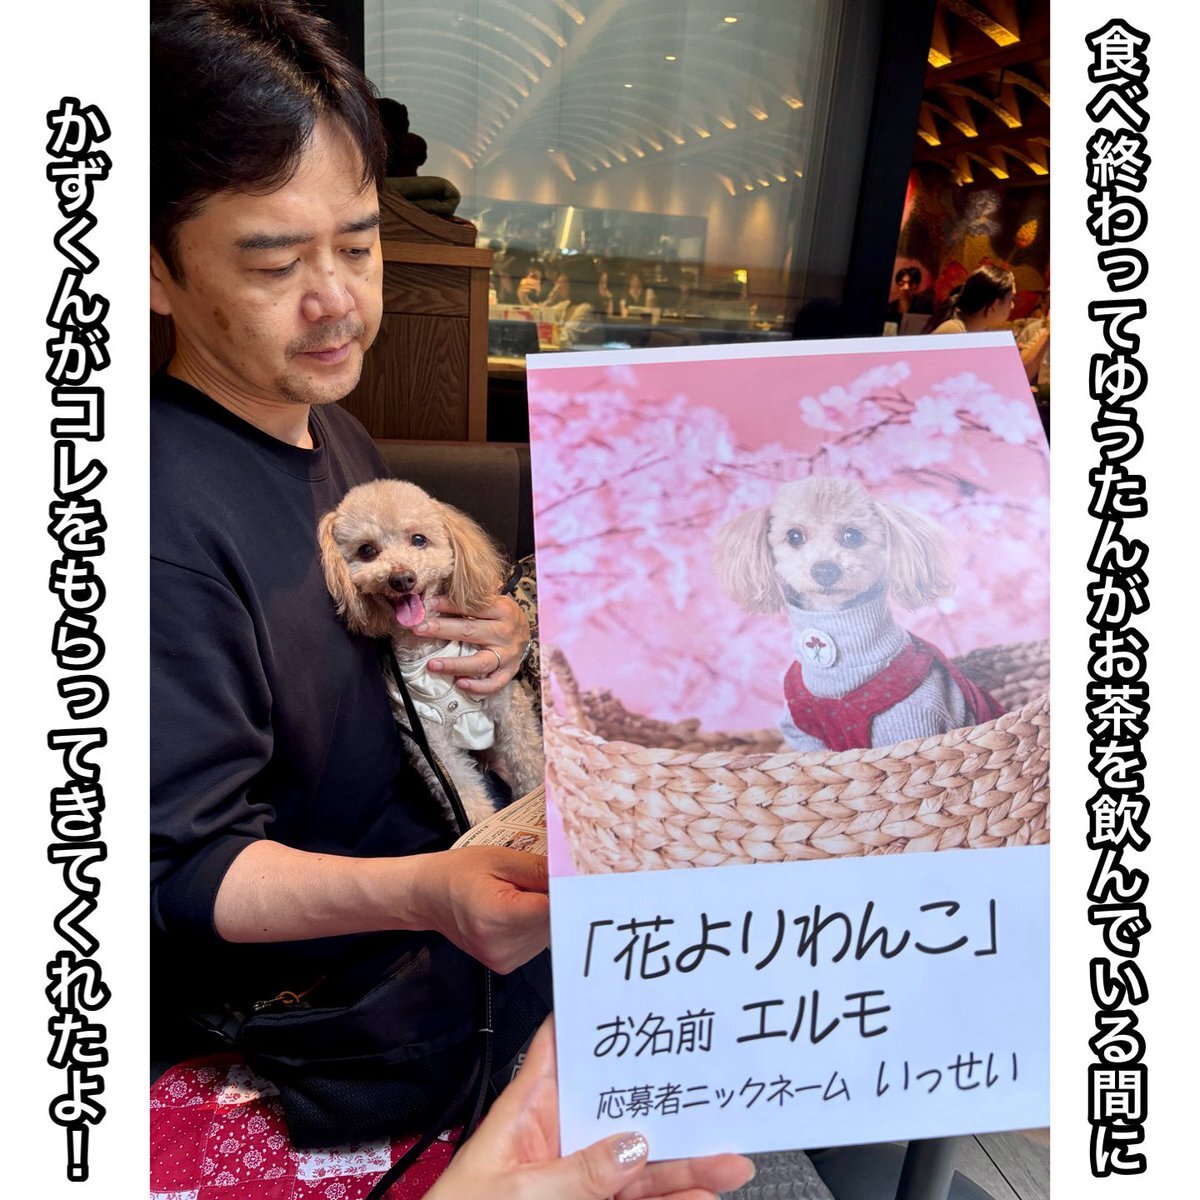 食べ終わってゆうたんがお茶を飲んでいる間に
かずくんがコレをもらってきてくれたよ！
「花よりわんこ」
お名前 エルモ
応募者ニックネーム いっせい